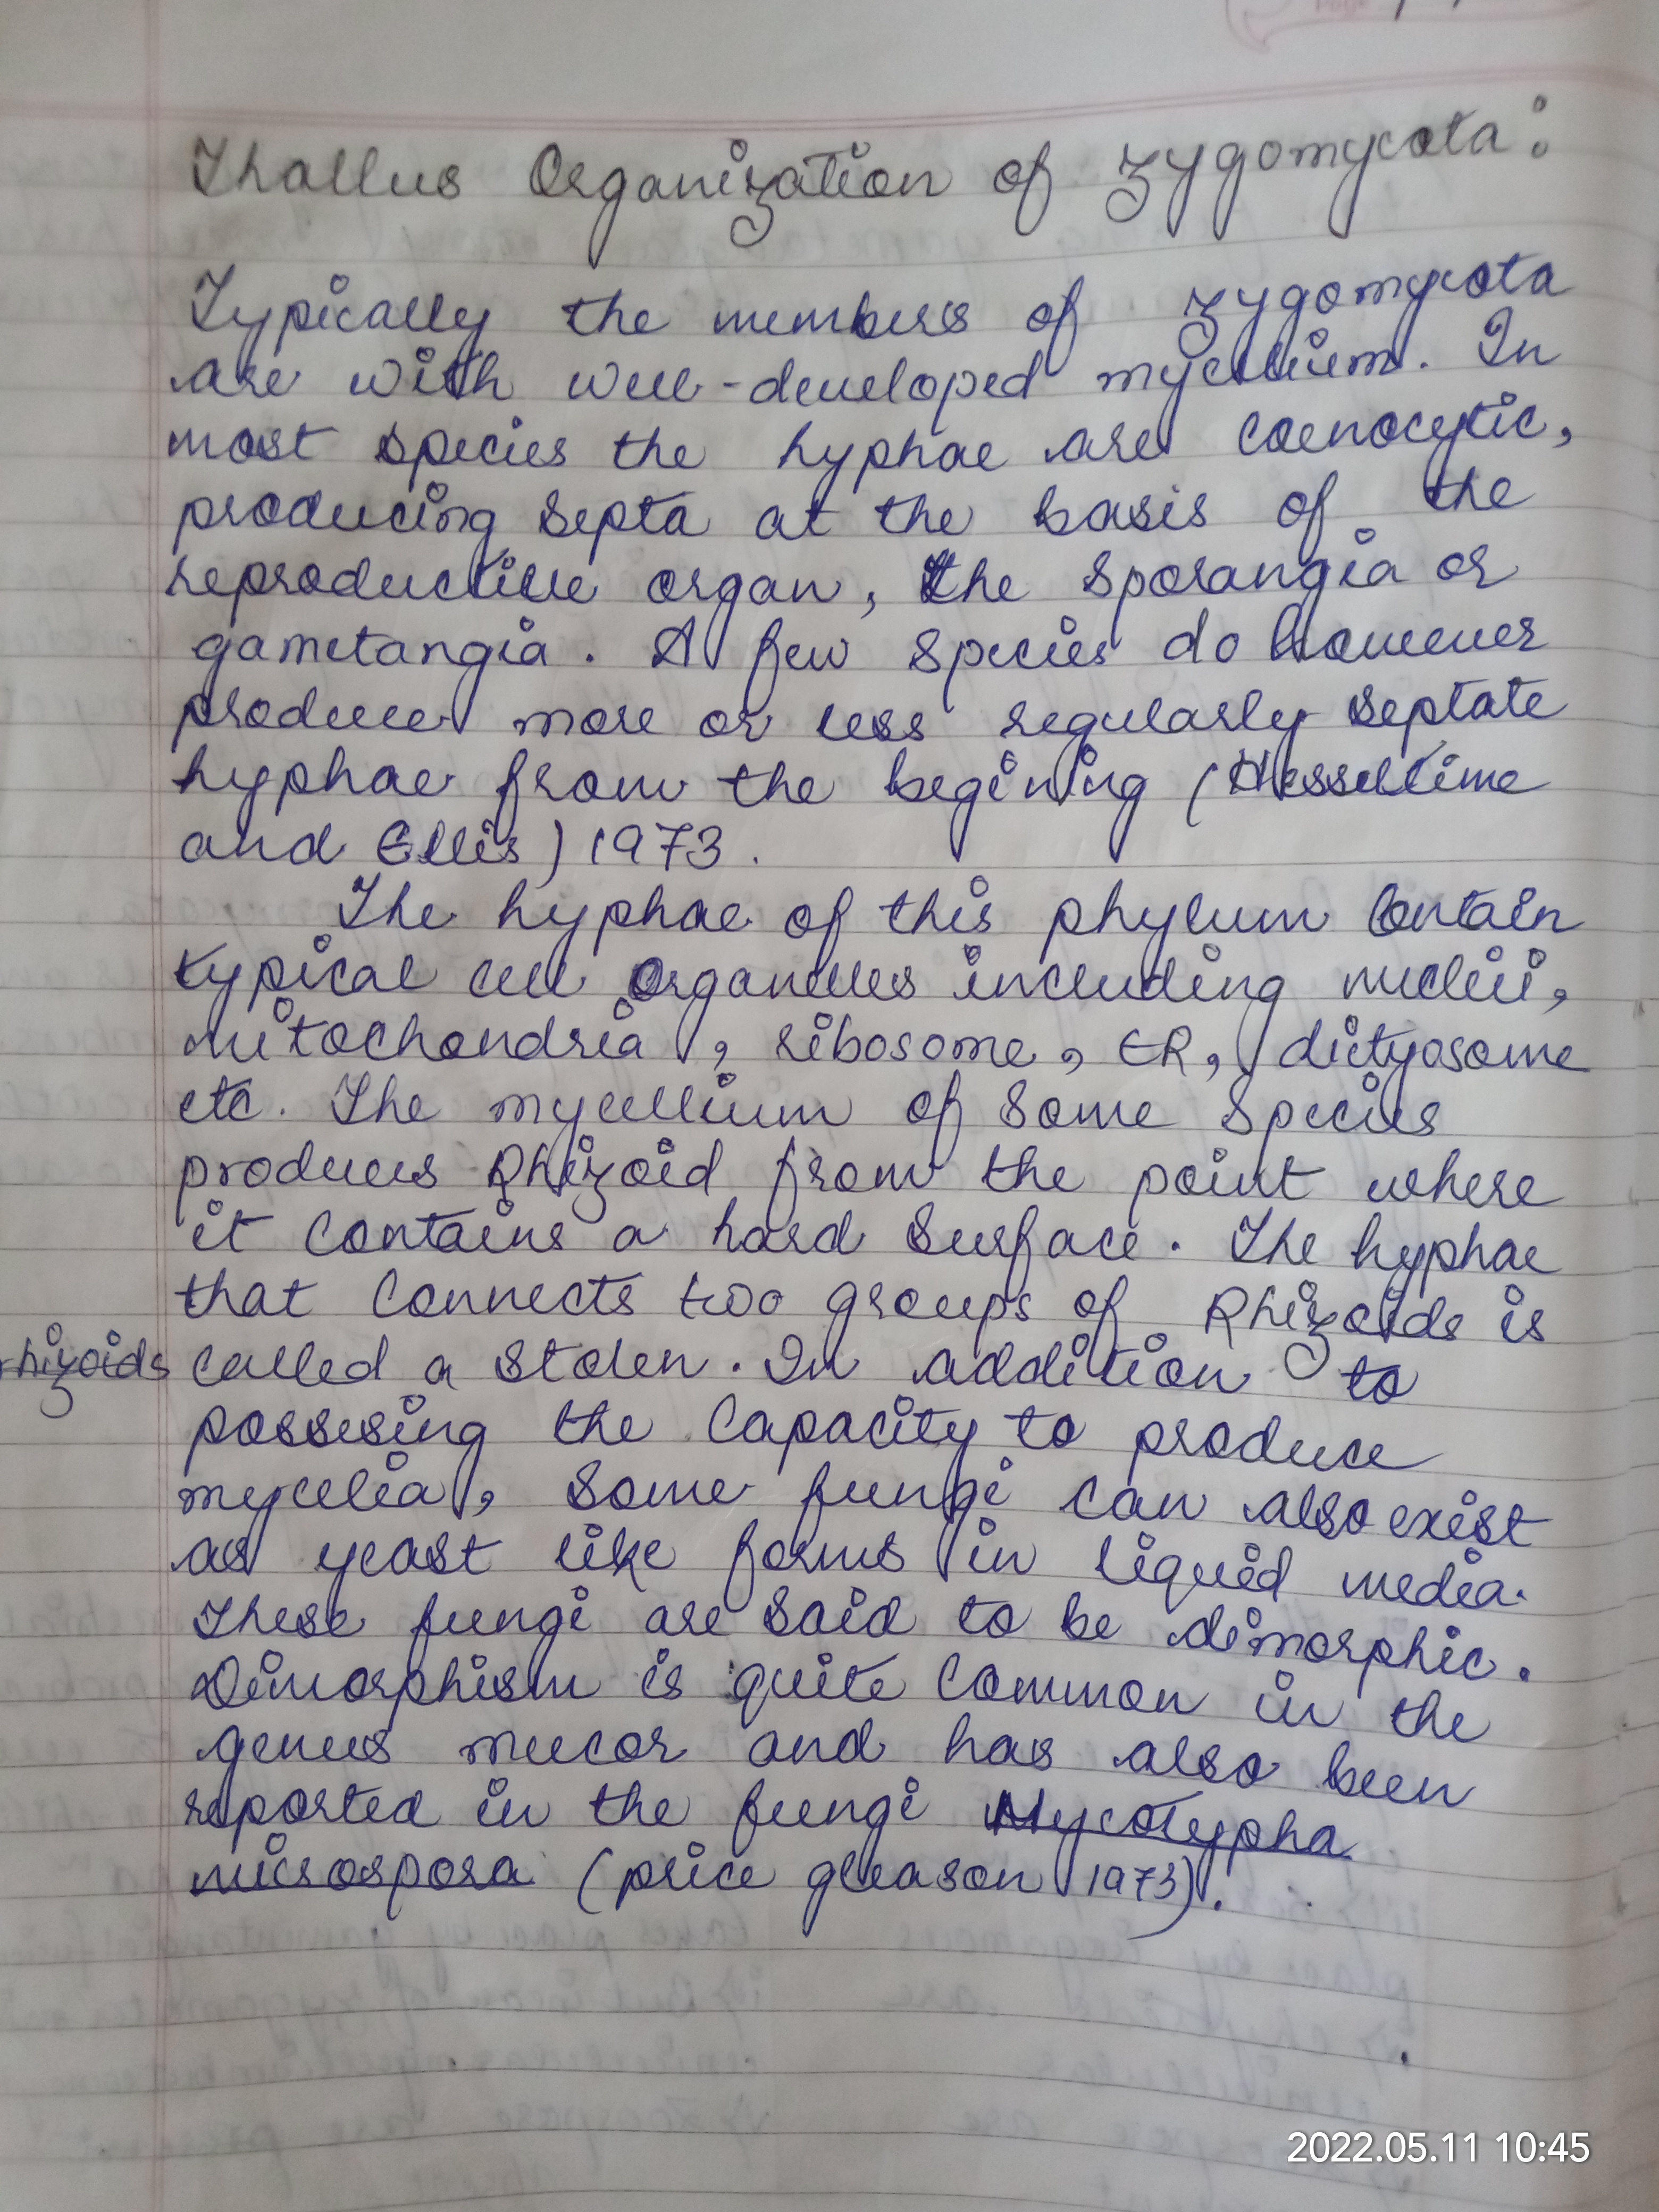 Thallus Organization of Zygomycota:
Typically the members of Zygomycota
are with well-developed mycellium. In
most species the hyphae are coenocytic,
producing septa at the basis of the
reproductive organ, the sporangia or
gametangia. A few species do however
produce more or less regularly septate
hyphae from the begining (Hesseltime
and Ellis) 1973.
The hyphae of this phylum contain
typical cell organelles including nuclii,
mitochondria, ribosome, ER, dictyosome
etc. The mycellium of some species
produces Rhizoid from the point where
it contains a hard surface. The hyphae
that connects two groups of Rhizoids is
rhizoids called a stolen. In addition to
possesing the capacity to produce
mycelia, some fungi can also exist
as yeast like forms in liquid media.
These fungi are said to be dimorphic.
Dimorphism is quite common in the
genus mucor and has also been
reported in the fungi Mycotypha
microspora (price gleason 1973).
2022.05.11 10:45